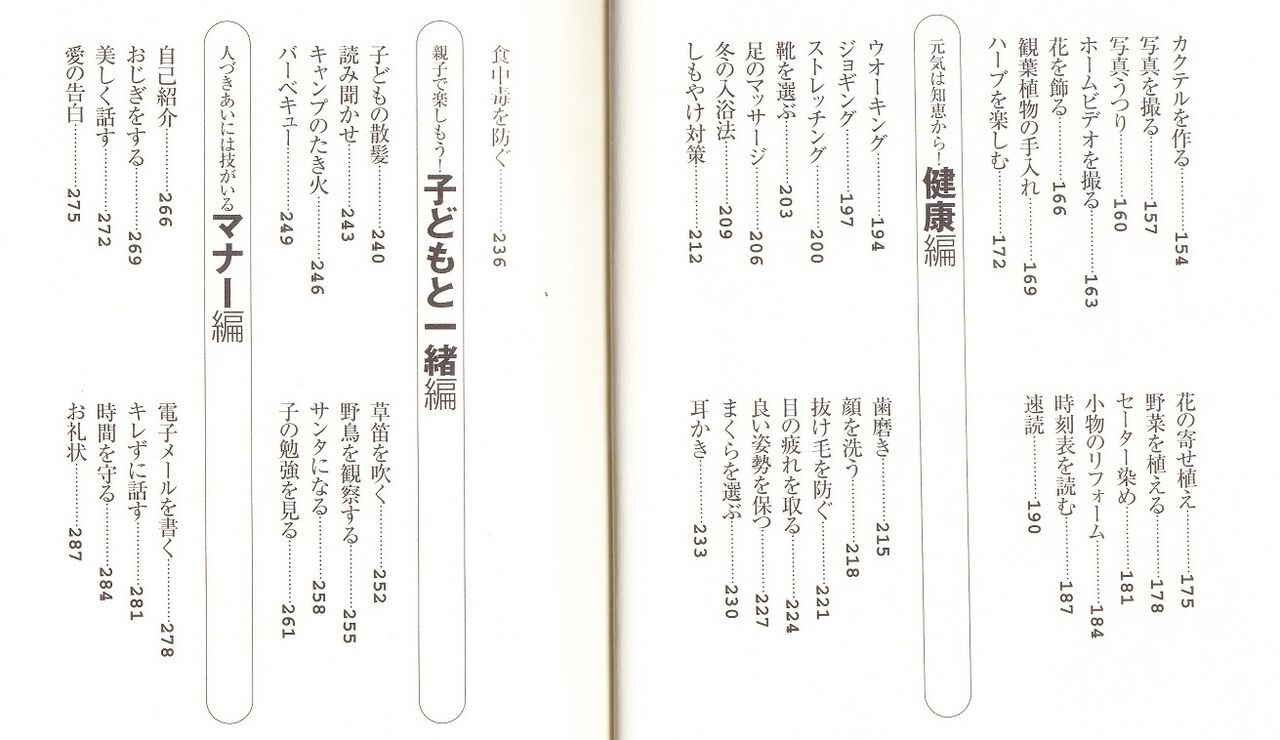 カクテルを作る………154
写真を撮る………157
写真うつり………160
ホームビデオを撮る………163
花を飾る………166
観葉植物の手入れ………169
ハーブを楽しむ………172
花の寄せ植え………175
野菜を植える………178
セーター染め………181
小物のリフォーム………184
時刻表を読む………187
速読………190
元気は知恵から！健康編
ウオーキング………194
ジョギング………197
ストレッチング………200
靴を選ぶ………203
足のマッサージ………206
冬の入浴法………209
しもやけ対策………212
歯磨き………215
顔を洗う………218
抜け毛を防ぐ………221
目の疲れを取る………224
良い姿勢を保つ………227
まくらを選ぶ………230
耳かき………233
食中毒を防ぐ………236
親子で楽しもう！子どもと一緒編
子どもの散髪………240
読み聞かせ………243
キャンプのたき火………246
バーベキュー………249
草笛を吹く………252
野鳥を観察する………255
サンタになる………258
子の勉強を見る………261
人づきあいには技がいるマナー編
自己紹介………266
おじぎをする………269
美しく話す………272
愛の告白………275
電子メールを書く………278
キレずに話す………281
時間を守る………284
お礼状………287